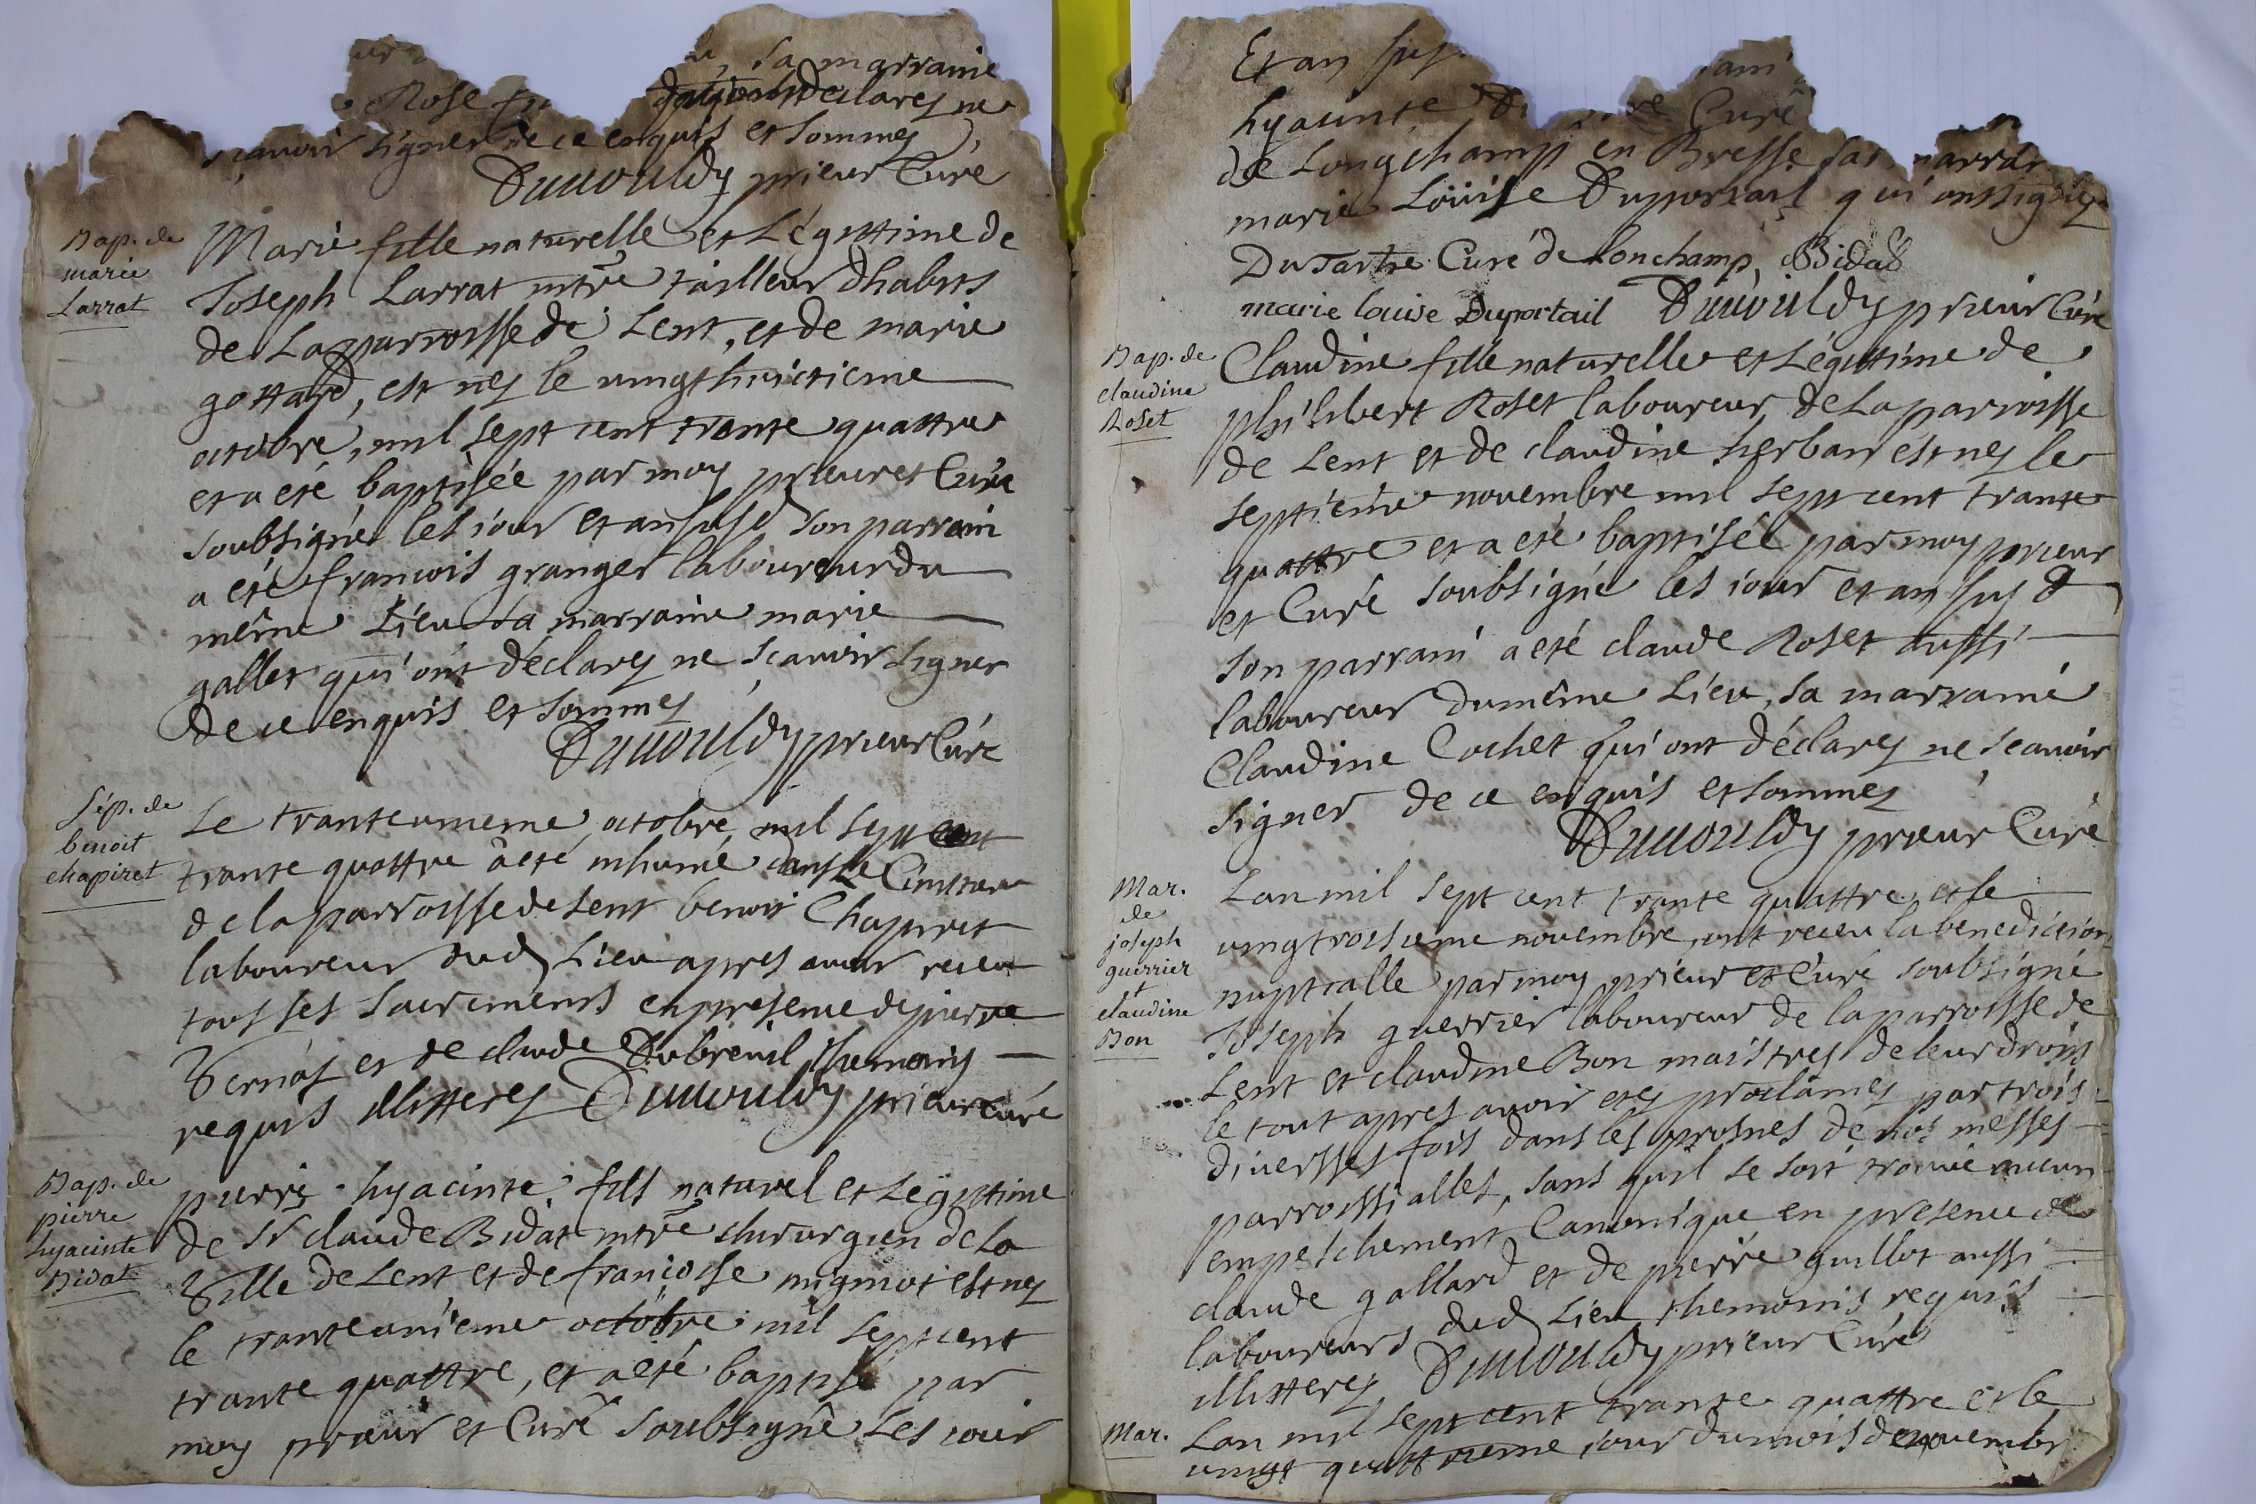 sa marraine
Rose declarez ne
scavoir signer de ce enquis et sommez
Duvouldy prieur Curé
Bap. de
marie
Larrat
Marie fille naturelle et Légittime de
Joseph Larrat mtre tailleur dhabits
de La parroisse de Lent, et de marie
gottard, est nez le vingthuictieme
octobre, mil sept cent trante quattre
et a eté baptisée par moy prieur et Curé
soubsigné les jour et an susd son parrain
a eté francois granger laboureur du
même Lieu sa marraine marie
gallet qui ont déclarez ne scavoir signer
de ce enquis et sommez
Duvouldy prieur Curé
Sép. de
benoit
chapiret
Le tranteunieme octobre mil sept cent
trante quattre a eté inhumé dans le Cimitiere
de la parroisse de Lent benoit Chapiret
laboureur dud Lieu apres avoir receu
tous ses sacrements en presence de pierre
Vernas et de claude Dubreuil themoins
requis illitterez Duvouldy prieur curé
Bap. de
pierre
hyacinte
Bidat
pierre hyacinte, fils naturel et Legittime
de Sr claude Bidat mtre chirurgien de La
Ville de Lent et de francoise mignot est nez
le tranteunieme octobre mil sept cent
trante quattre, et a eté baptisé par
moy prieur et Curé soubsigné Les jour
Et an sus
hyacinte Curé
de Longchamp en Bresse sa marraine
marie Loüise Duportail qui ont signez
DuTartre Curé de Lonchamp, Bidat
marie louise Duportail Duvouldy prieur Curé
Bap. de
claudine
Roset
Claudine fille naturelle et Légittime de
philibert Roset laboureur de La parroisse
de Lent et de claudine herban est nez le
septieme novembre mil sept cent trante
quattre et a eté baptisée par moy prieur
et Curé soubsigné les jour et an sus d
son parrain a eté claude Roset aussi
laboureur du même Lieu, sa marraine
Claudine Cochet qui ont déclarez ne scavoir
signer de ce enquis et sommez
Duvouldy prieur Curé
Mar.
de
joseph
guerrier
et
claudine
Bon
Lan mil sept cent trante quattre et le
vingtroisieme novembre, ont receu la benediction
nuptialle par moy prieur et Curé soubsigné
Joseph guerrier laboureur de la parroisse de
Lent et claudine Bon maistres de leur droits
le tout apres avoir etez proclamez par trois
diversses fois dans les prosnes de nos messes
parroissialles, sans quil se soit trouvé aucun
empeschement Canonique en presence de
claude gallard et de pierre guillot aussi
laboureurs dud Lieu themoins requis
illitterez Duvouldy prieur Curé
Mar.
Lan mil sept cent trante quattre et le
vingt quattrieme jour du mois de novembre